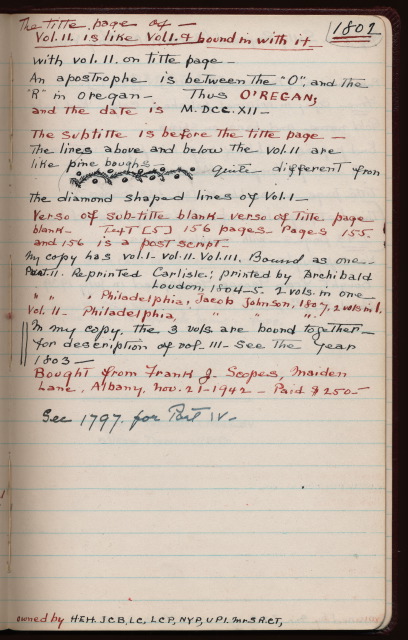 The title page of —
1802
Vol. II. is like Vol I. & bound in with it
with vol. II. on title page —
An apostrophe is between the "O", and the
"R" in Oregan — Thus O'REGAN;
and the date is M.DCC.XII —
The subtitle is before the title page —
The lines above and below the Vol. II are
like pine boughs —
quite different from
the diamond shaped lines of Vol. I —
Verso of sub-title blank — verso of Title page
blank — [5] 156 pages — Pages 155
and 156 is a post script —
My copy has vol. I — Vol. II — Vol. III. Bound as one —
Part II. Reprinted Carlisle; printed by Archibald
Loudon, 1804-5. 2 vols. in one
" " " Philadelphia, Jacob Johnson, 1807, 2 vols in 1.
Vol. II — Philadelphia, " " " .
In my copy, the 3 vols are bound together —
for description of vol — III — see the year
1803 —
Bought from Frank J. Scopes, Maiden
Lane, Albany, Nov. 21-1942 — Paid $250—
See 1797. for Part IV —
owned by HEH. JCB, LC, LCP, NYP, UPI. Mrs R.CT,